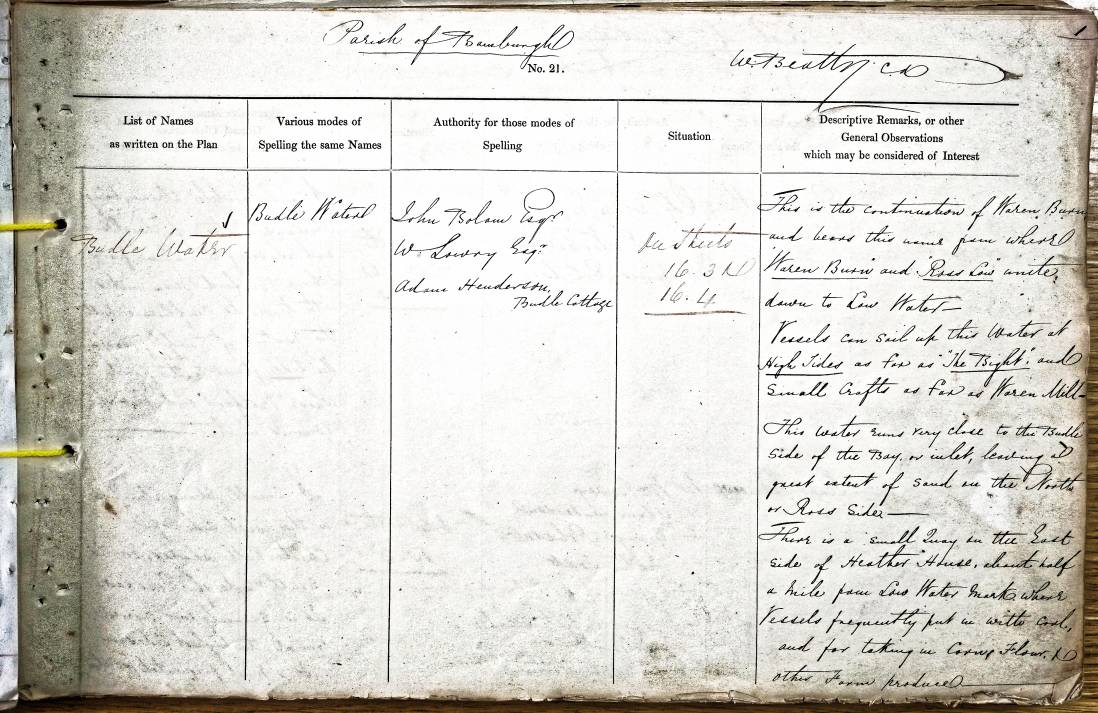 1
Parish of Bamburgh
No. 21.
W. Beatty C
List of Names
as written on the Plan
Various modes of
Spelling the same Names
Authority for those modes of
Spelling
Situation
Descriptive Remarks, or other
General Observations
which may be considered of Interest
Budle Water
Budle Water
John Bolam Esqr
W. Lowry Esqr
Adam Henderson,
Budle Cottage
On Sheets
16. 3
16. 4
This is the continuation of Waren Burn
and bears this name from where
"Waren Burn" and "Ross Low" unite,
down to Low Water—
Vessels can sail up this Water at
High Tides as far as "The Bight", and
Small Crafts as far as Waren Mill—
This water runs very close to the Budle
Side of the Bay, or inlet, leaving a
great extent of Sand on the North
or Ross Side—
There is a small Quay on the East
Side of Heather House, about half
a Mile from Low Water Mark where
Vessels frequently put in with Coal,
and for taking in Corn, Flour, &
other Farm produce